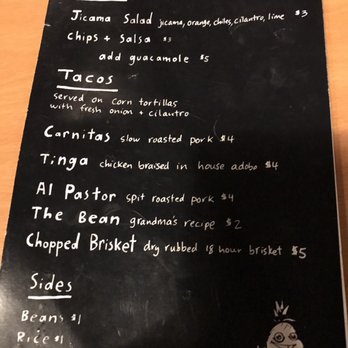 Jicama Salad jicama, orange, chiles, cilantro, lime $3
Chips + Salsa $3
add guacamole $5
Tacos
served on corn tortillas
with fresh onion + cilantro
Carnitas slow roasted pork $4
Tinga chicken braised in house adobo $4
Al Pastor spit roasted pork $4
The Bean grandma's recipe $2
Chopped Brisket dry rubbed 18 hour brisket $5
Sides
Beans $1
Rice $1